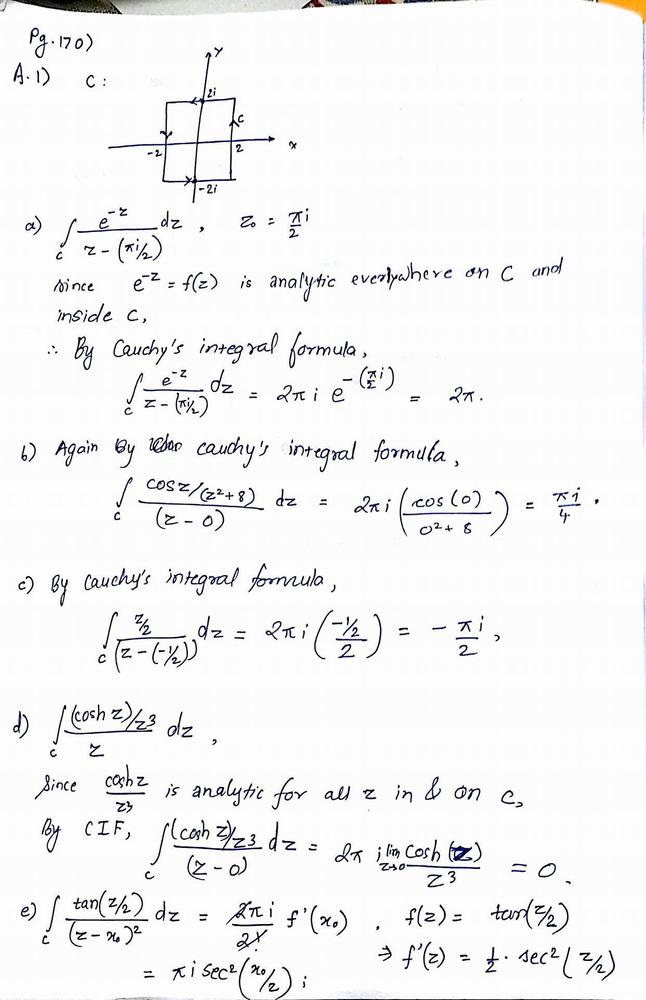 Pg.170)
A.1) C:
y
2i
c
-2
2
x
-2i
a) ∫_C e^{-z}/(z-(πi/2)) dz , z₀ = π/2 i
since e^{-z} = f(z) is analytic everlywhere on C and
inside C,
∴ By Cauchy's integral formula,
∫_C e^{-z}/(z-(πi/2)) dz = 2πi e^{-(πi/2)} = 2π.
b) Again By cauchy's integral formula,
∫_C (cosz/(z²+8))/(z-0) dz = 2πi (cos(0)/(0²+8)) = πi/4 .
c) By cauchy's integral formula,
∫_C (z/2)/(z-(-1/2)) dz = 2πi ((-1/2)/2) = - πi/2 ,
d) ∫_C ((cosh z)/z³)/z dz ,
Since cosh z/z³ is analytic for all z in & on C,
By CIF, ∫_C ((cosh z)/z³)/(z-0) dz = 2π i lim_{z→0} cosh(z)/z³ = 0.
e) ∫_C tan(z/2)/(z-x₀)² dz = 2πi/2! f'(x₀) . f(z) = tan(z/2)
⇒ f'(z) = 1/2 . sec²(z/2)
= πi sec²(x₀/2) ;